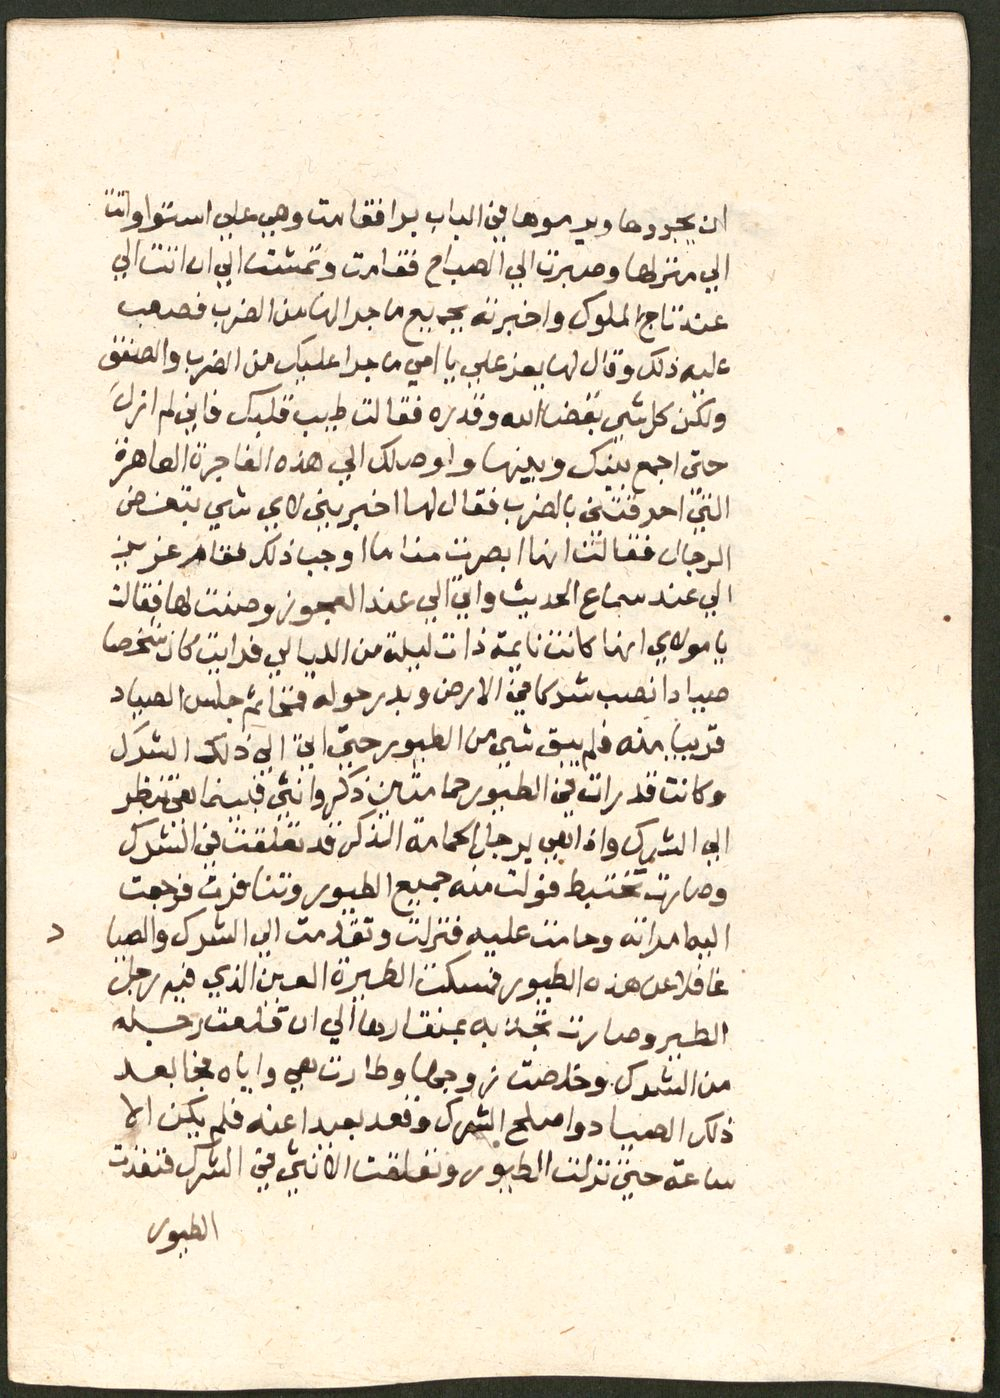 ان يجروها ويرموها في الباب برا فقامت وهي علي استوا واتت
الي منزلها وصبرت الي الصباح فقامت وتمشت الي ان اتت الي
عند تاج الملوك واخبرته بجميع ما جرا لها من الضرب فصعب
عليه ذلك وقال لها يعز علي يا امي ما جرا عليكي من الضرب والصفق
ولكن كل شي بقضا الله وقدره فقالت طيب قلبك فاني لم ازل
حتي اجمع بينك وبينها واوصلك الي هذه الفاجرة العاهرة
التي احرقتني بالضرب فقال لها اخبريني لاي شي تبغض
الرجال فقالت انها ابصرت مناما اوجب ذلك
الي عند سماع الحديث واتي الي عند العجوز وصنت لها فقالت
يا مولاي انها كانت نايمة ذات ليلة من الليالي فرايت كان شخصا
صيادا نصب شركا في الارض وبدر حوله قمحا ثم جلس الصياد
قريبا منه فلم يبق شي من الطيور حتي اتي الي ذلك الشرك
وكانت قد رات في الطيور حمامتين ذكر وانثي فبينما هي تنظر
الي الشرك واذا هي برجل الحمامة الذكر قد تعلقت في الشرك
وصارت تختبط فولت منه جميع الطيور وتنافرت فرجعت
اليه امراته وحامت عليه فنزلت وتقدمت الي الشرك والصيا
د
غافلا عن هذه الطيور فمسكت الطيرة العين الذي فيه رجل
الطير وصارت تجذبه بمنقارها الي ان قلعت رجله
من الشرك وخلصت زوجها وطارت هي واياه فجا بعد
ذلك الصياد واصلح الشرك وقعد بعيدا عنه فلم يكن الا
ساعة حتي نزلت الطيور وتعلقت الانثي في الشرك فنفذت
الطيور